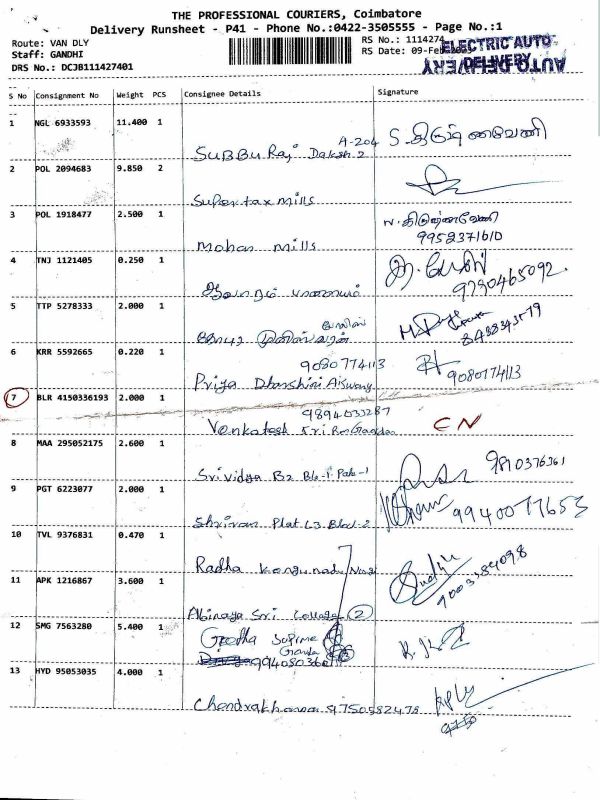 THE PROFESSIONAL COURIERS, Coimbatore
Delivery Runsheet - P41 - Phone No.:0422-3505555 - Page No.:1
Route: VAN DLY
RS No.: 1114274
Staff: GANDHI
RS Date: 09-Feb-2023
DRS No.: DCJB111427401
ELECTRIC AUTO
DELIVERY
AUTO DELIVERY
S No Consignment No Weight PCS Consignee Details Signature
1 NGL 6933593 11.400 1
A-204
SUBBU Raj Daksh 2
2 POL 2094683 9.850 2
Super tax mills
3 POL 1918477 2.500 1
Mohan mills
9952371610
4 TNJ 1121405 0.250 1
9790465092.
5 TTP 5278333 2.000 1
முனீஸ்வரன்
6 KRR 5592665 0.220 1
9080774113
Priya Dharshini Aiswarya
9080774113
7 BLR 4150336193 2.000 1
9894033287
Venkatesh Sri Ram Garden
CN
8 MAA 295052175 2.600 1
Srividya B2 Blc-1
9810376361
9 PGT 6223077 2.000 1
Shriram Plat L3
9940077653
10 TVL 9376831 0.470 1
Radha Kongunadu
9003384098
11 APK 1216867 3.600 1
Abinaya Sri College 2
12 SMG 7563280 5.400 1
Geetha
13 HYD 95053035 4.000 1
9750582478
9750